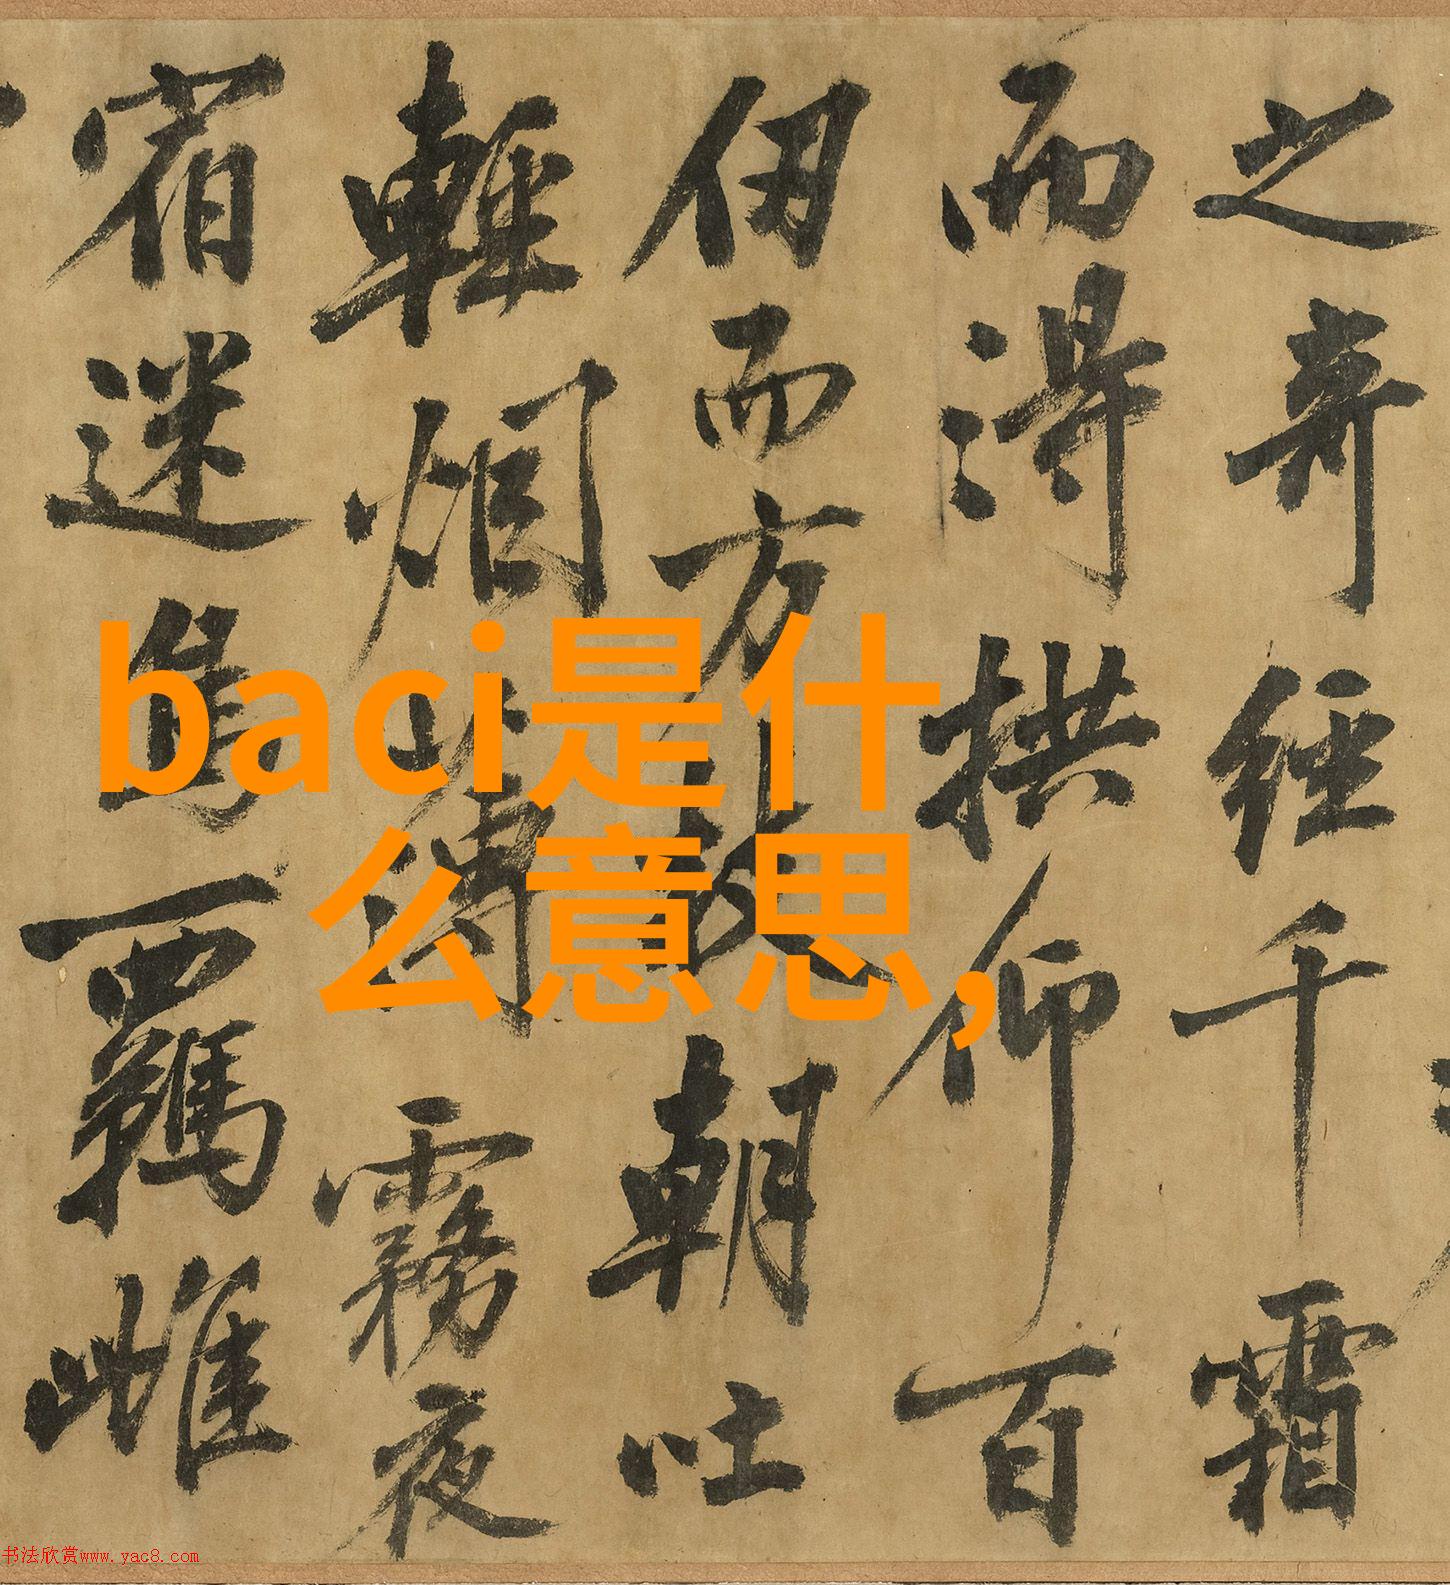 之奇經千霜
而得拱仰百
仞而方枝朝吐
輕烟薄霧夜
宿迷鳥羈雌
baci是什
么意思,
书法欣赏www.yac8.com